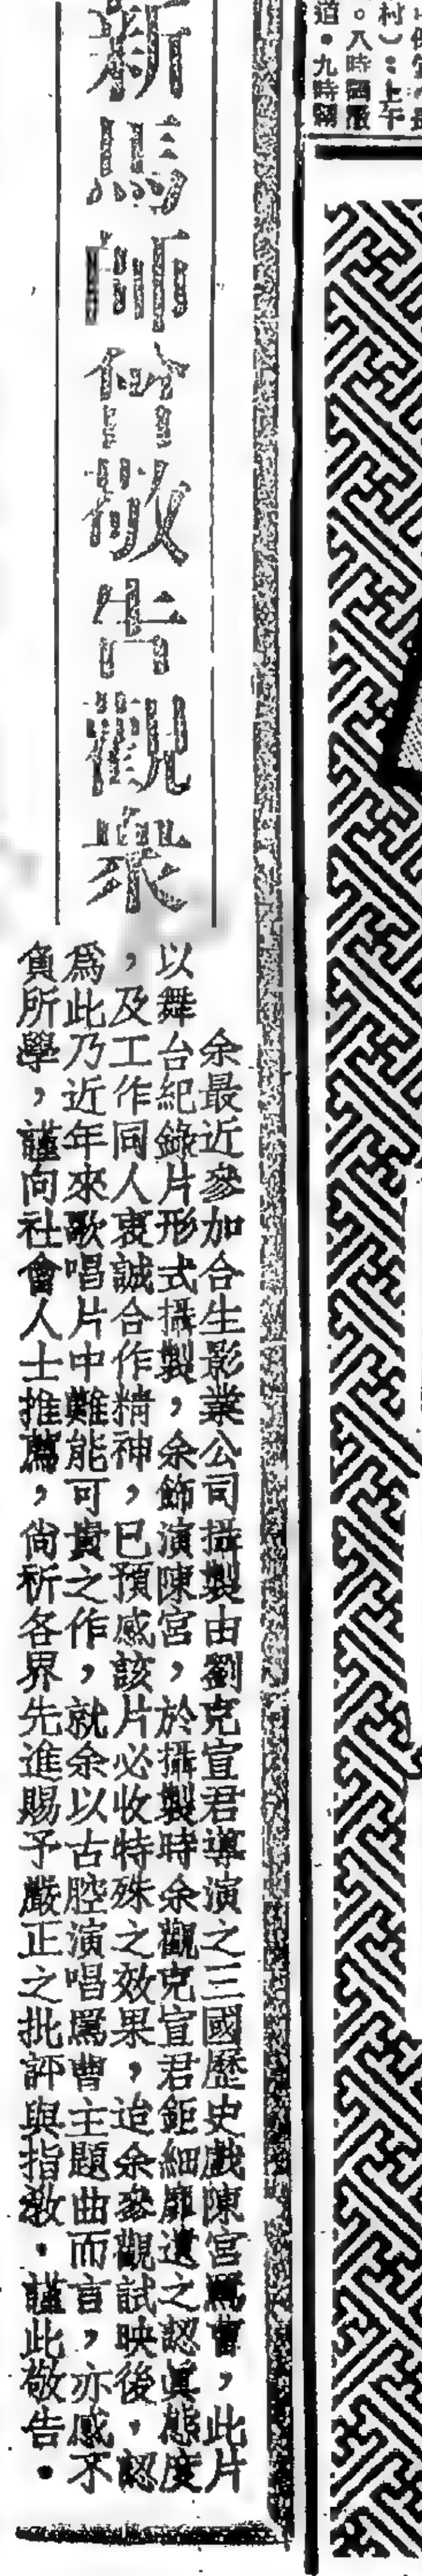 村）：上午
。八時
道。九時
新馬師曾敬告觀衆
余最近參加合生影業公司攝製由劉克宣君導演之三國歷史戲陳宮罵曹，此片
以舞台紀錄片形式攝製，余飾演陳宮，於攝製時余觀克宣君鉅細靡遺之認眞態度
，及工作同人衷誠合作精神，已預感該片必收特殊之效果，迨余參觀試映後，認
爲此乃近年來歌唱片中難能可貴之作，就余以古腔演唱罵曹主題曲而言，亦感不
負所學，謹向社會人士推薦，尙祈各界先進賜予嚴正之批評與指敎．謹此敬告．